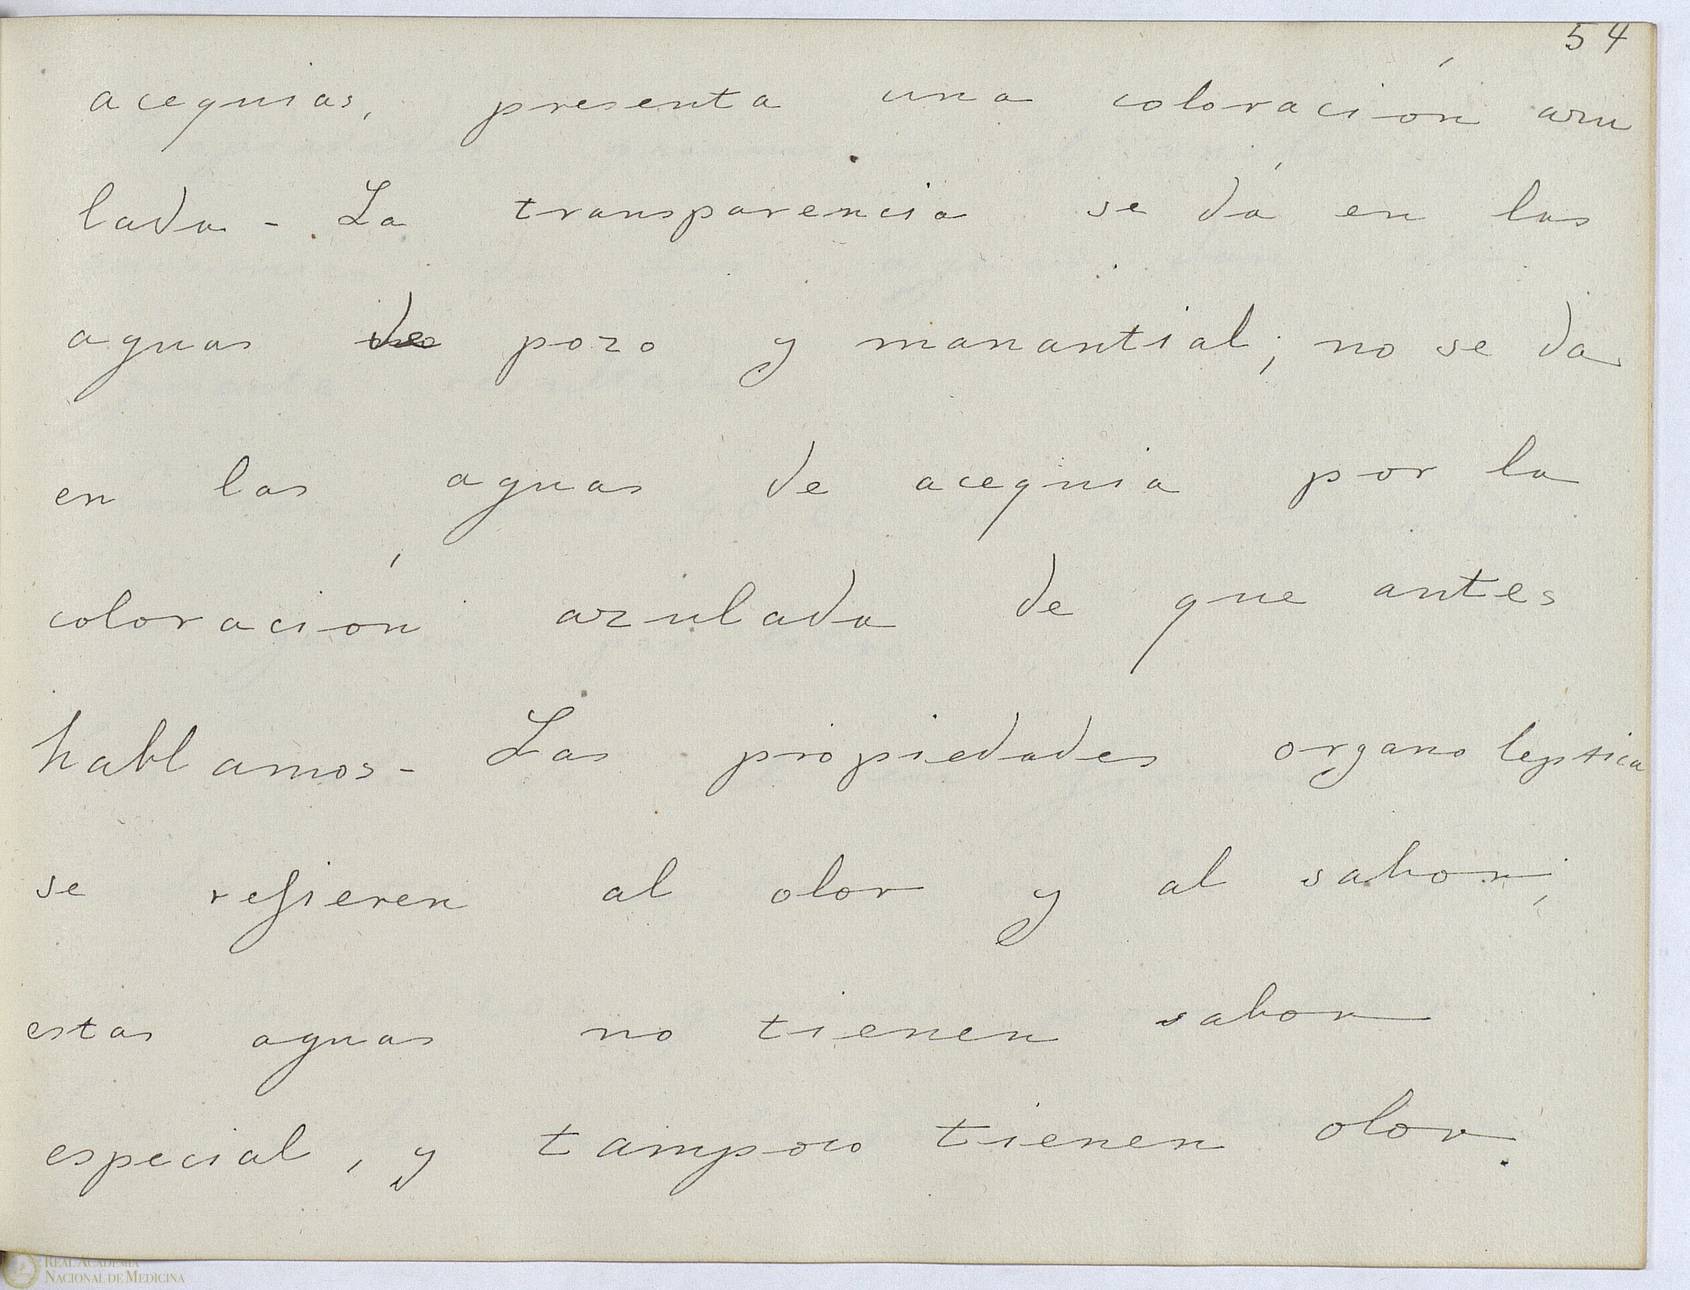 54
acequias, presenta una coloración azu
lada - La transparencia se dá en las
aguas de pozo y manantial; no se da
en las aguas de acequia por la
coloración azulada de que antes
hablamos - Las propiedades organolepticas
se refieren al olor y al sabor;
estas aguas no tienen sabor
especial, y tampoco tienen olor.
REAL ACADEMIA
NACIONAL DE MEDICINA